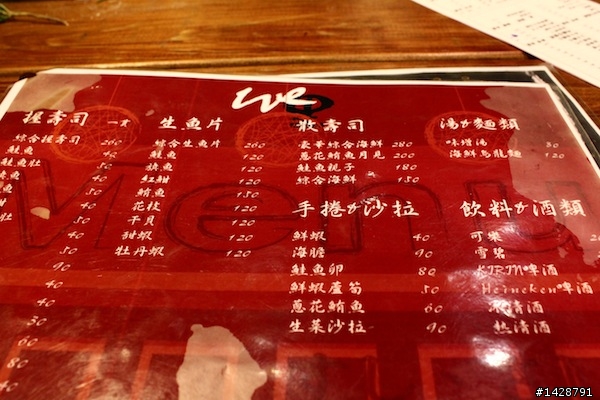 we
Menu
握壽司 一貫
綜合握壽司 260
鮭魚 40
鮭魚肚
50
40
50
90
40
40
30
60
80
40
生魚片
綜合生魚片 260
鮭魚 120
旗魚 120
紅魽 120
鮪魚 150
花枝 120
干貝 120
甜蝦 120
牡丹蝦 120
散壽司
豪華綜合海鮮 280
蔥花鮪魚月見 200
鮭魚親子 180
綜合海鮮 150
手捲&沙拉
鮮蝦 40
海膽 90
鮭魚卵 80
鮮蝦蘆筍 50
蔥花鮪魚 60
生菜沙拉 90
湯&麵類
味增湯 30
海鮮烏龍麵 120
飲料&酒類
可樂
雪碧
KIRIN啤酒
Heineken啤酒
冰清酒
熱清酒
#1428791